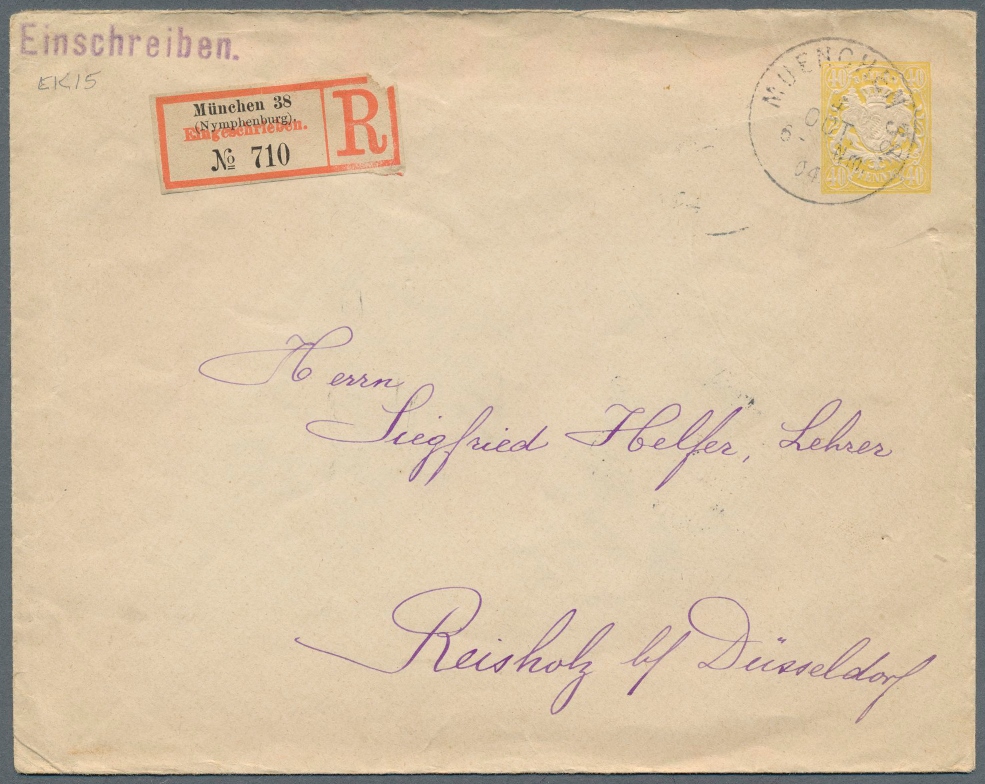 Einschreiben.
EK15
München 38
(Nymphenburg).
Eingeschrieben.
№ 710
R
MUENCHEN 38
OCT
04
40 40
PFENNIG
40 40
Herrn
Siegfried Helfer, Lehrer
Reisholz b/ Düsseldorf